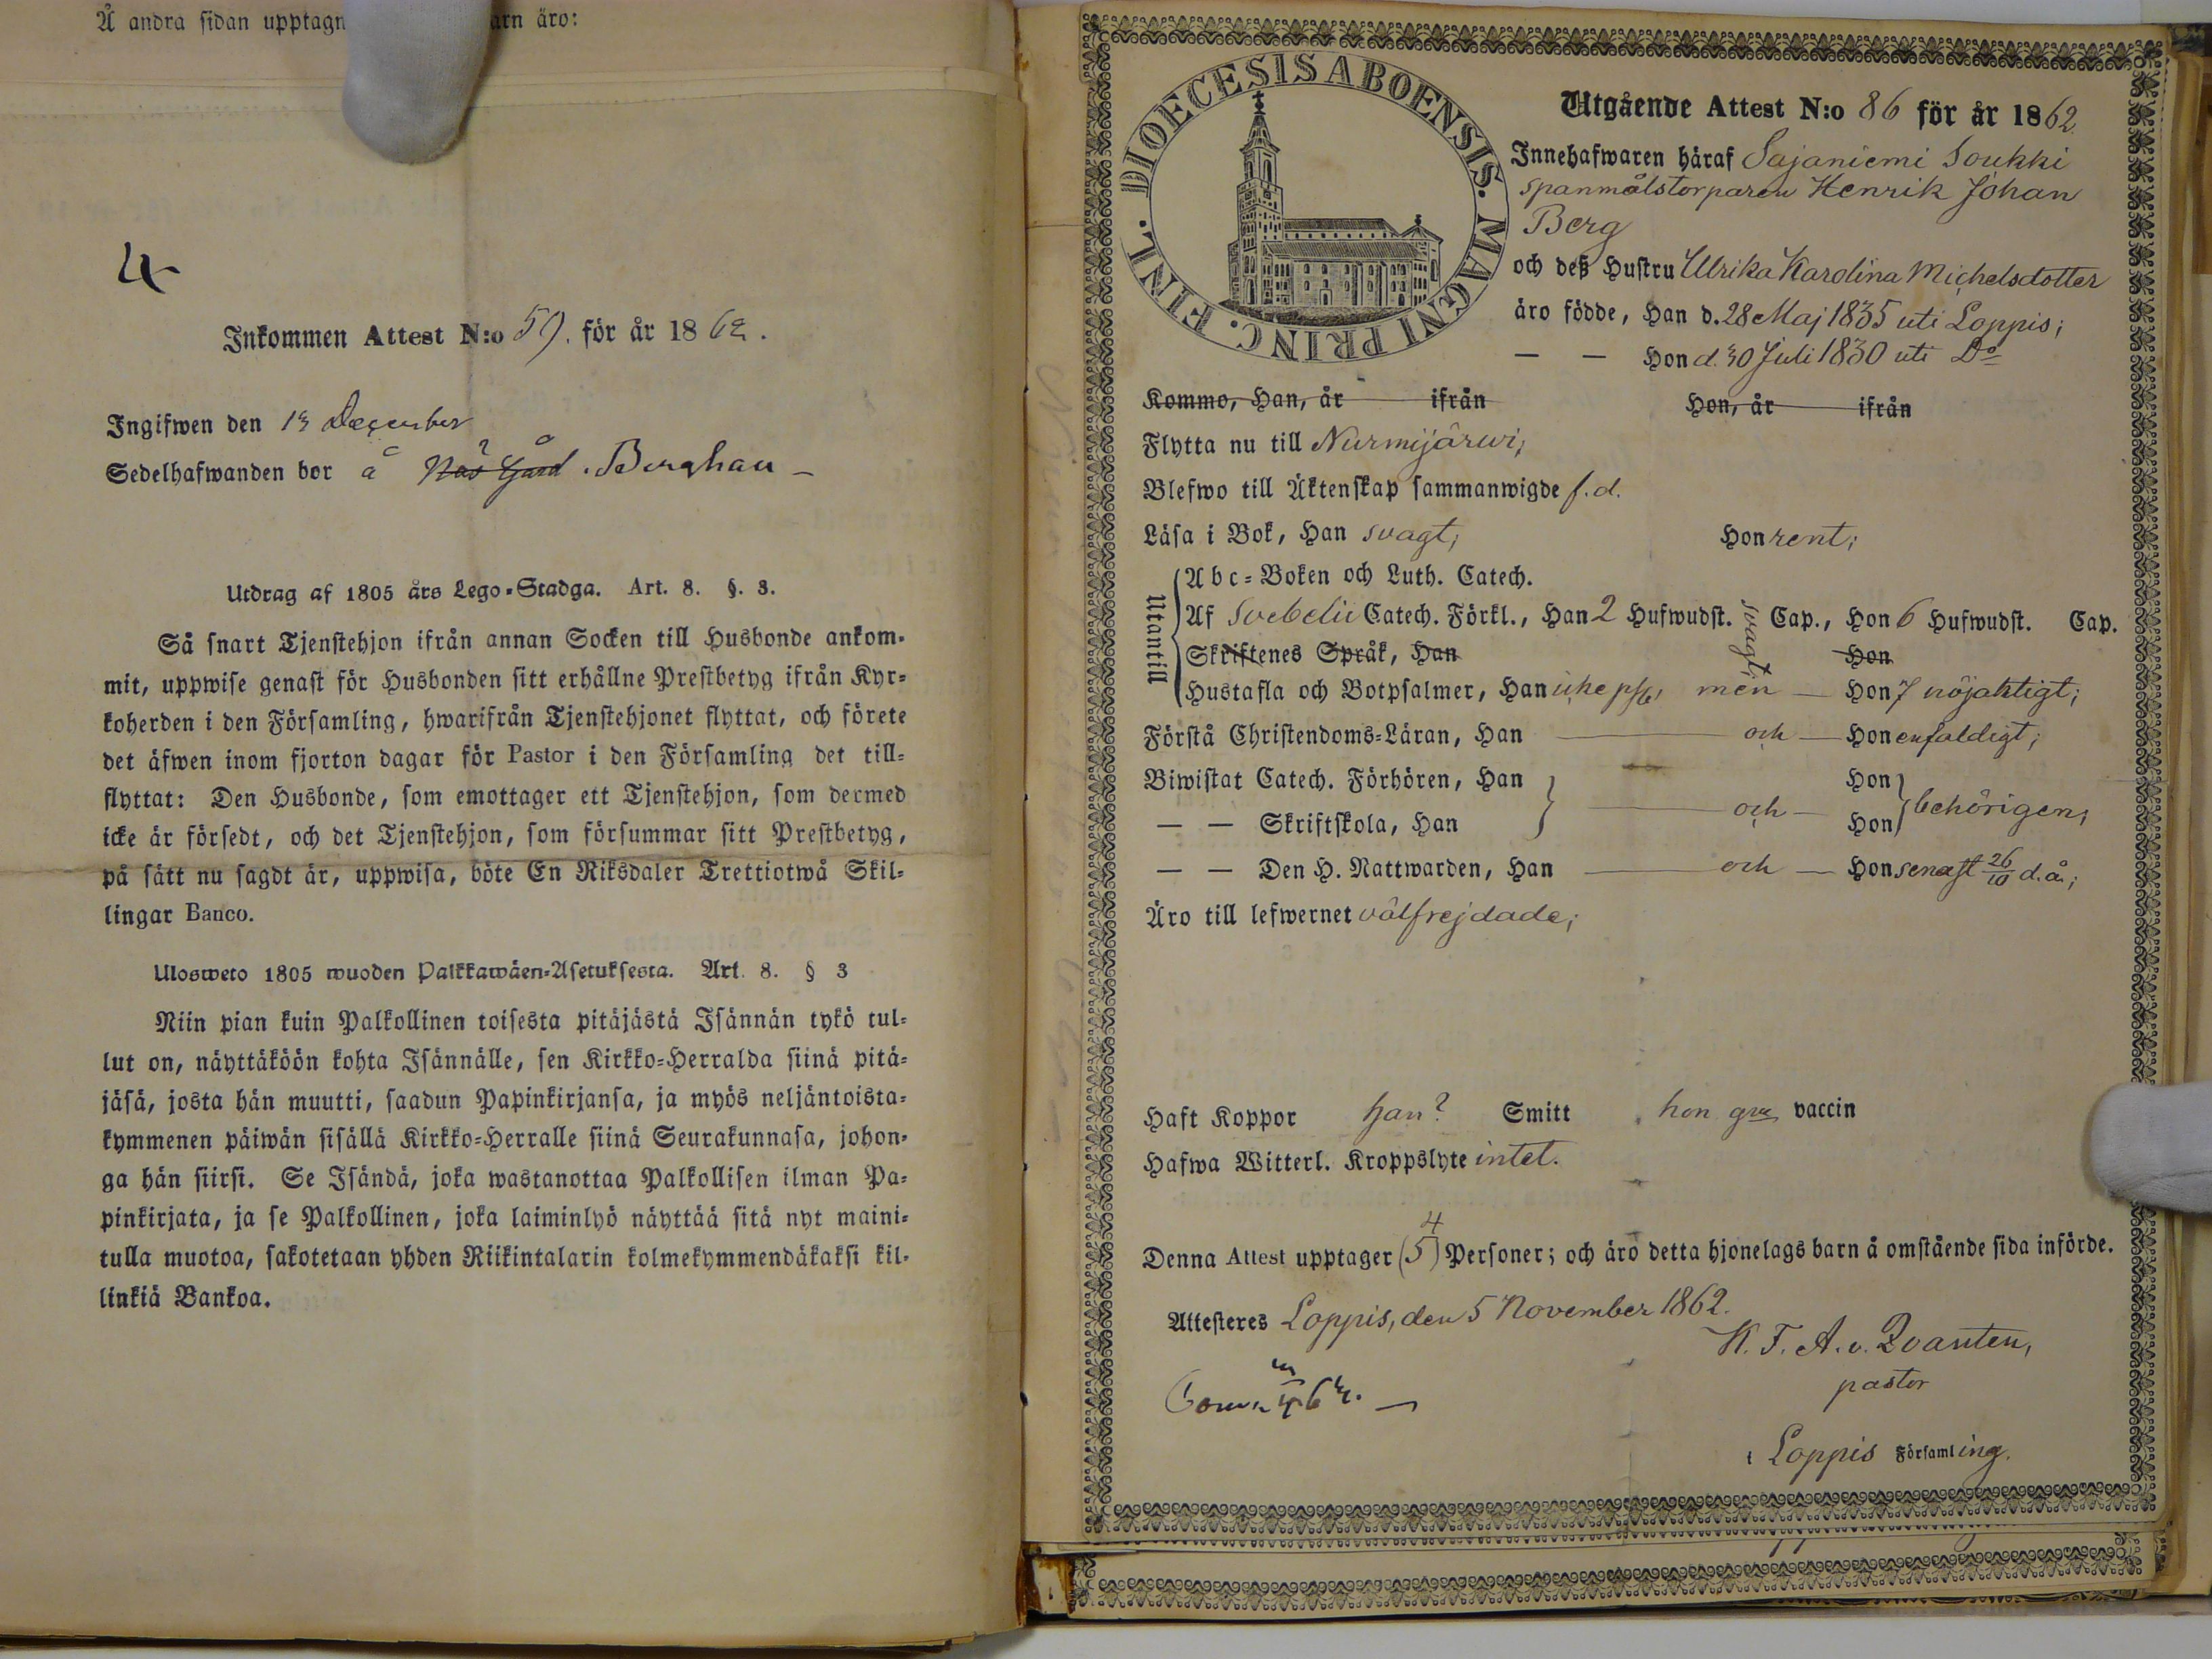 Å andra sidan upptagn arn äro:
4
Inkommen Attest N:o 59. för år 1862.
Ingifwen den 13 December
Sedelhafwanden bor å Näs Gård. Berghan –
Utdrag af 1805 års Lego-Stadga. Art. 8. §. 3.
Så snart Tjenstehjon ifrån annan Socken till Husbonde ankom-
mit, uppwise genast för Husbonden sitt erhållne Prestbetyg ifrån Kyr-
koherden i den Församling, hwarifrån Tjenstehjonet flyttat, och förete
det äfwen inom fjorton dagar för Pastor i den Församling det till-
flyttat: Den Husbonde, som emottager ett Tjenstehjon, som dermed
icke är försedt, och det Tjenstehjon, som försummar sitt Prestbetyg,
på sätt nu sagdt är, uppwisa, böte En Riksdaler Trettiotwå Skil-
lingar Banco.
Ulosweto 1805 wuoden Palkkawäen-Asetuksesta. Art. 8. § 3
Niin pian kuin Palkollinen toisesta pitäjästä Isännän tykö tul-
lut on, näyttäköön kohta Isännälle, sen Kirkko-Herralda siinä pitä-
jäsä, josta hän muutti, saadun Papinkirjansa, ja myös neljäntoista-
kymmenen päiwän sisällä Kirkko-Herralle siinä Seurakunnasa, johon-
ga hän siirsi. Se Isändä, joka wastanottaa Palkollisen ilman Pa-
pinkirjata, ja se Palkollinen, joka laiminlyö näyttää sitä nyt maini-
tulla muotoa, sakotetaan yhden Riikintalarin kolmekymmendäkaksi kil-
linkiä Bankoa.
DIOECESIS ABOENSIS. MAGNI PRINC. FINL.
Utgående Attest N:o 86 för år 1862
Innehafwaren häraf Sajaniemi Soukki
spanmålstorparen Henrik Johan
Berg
och deß Hustru Ulrika Karolina Michelsdotter
äro födde, Han d. 28 Maj 1835 uti Loppis;
— — Hon d. 30 Juli 1830 uti Do
Kommo, Han, år ifrån Hon, år ifrån
Flytta nu till Nurmijärwi;
Blefwo till Äktenskap sammanwigde f. d.
Läsa i Bok, Han svagt; Hon rent;
Utantill
Abc-Boken och Luth. Catech.
Af Svebelii Catech. Förkl., Han 2 Hufwudst. svagt Cap., Hon 6 Hufwudst. Cap.
Skriftenes Språk, Han Hon
Hustafla och Botpsalmer, Han icke men — Hon 7 nöjaktigt;
Förstå Christendoms-Läran, Han — och — Hon enfaldigt;
Biwistat Catech. Förhören, Han Hon
— — Skriftskola, Han — och — Hon behörigen;
— — Den H. Nattwarden, Han — och — Hon senast 26/10 d. å.;
Äro till lefwernet välfrejdade;
Haft Koppor han? Smitt hon vaccin
Hafwa Witterl. Kroppslyte intet.
4
Denna Attest upptager (5) Personer; och äro detta hjonelags barn å omstående sida införde.
Attesteres Loppis, den 5 November 1862.
K. F. A. v. Qvanten,
pastor
i Loppis Församling.